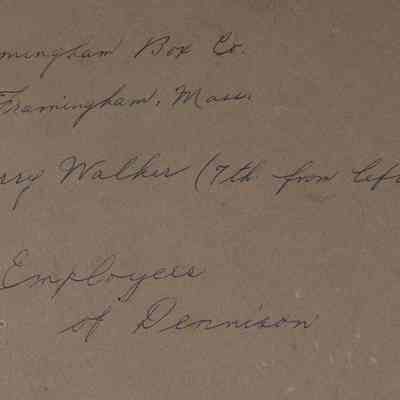 mingham Box Co.
Framingham, Mass.
rry Walker (7th from left
Employees
of Dennison